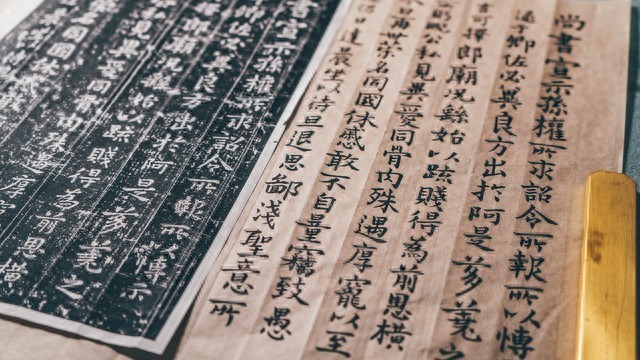 尚書宣示孫權所求詔令所報所以博
逮于卿佐必冀良方出於阿是芻蕘之
可擇郎廟況繇始以疏賤得為前恩橫
睨公私見異愛同骨肉殊遇厚寵以至
日再世榮名同國休感敢不自量竊致愚
日達晨坐以待旦退思鄙淺聖意所
書宣示孫權所求詔令所報所以博示
卿佐必冀良方出於阿是芻蕘之
擇郎廟況繇始以疏賤得為前恩橫
見異愛同骨肉殊遇厚